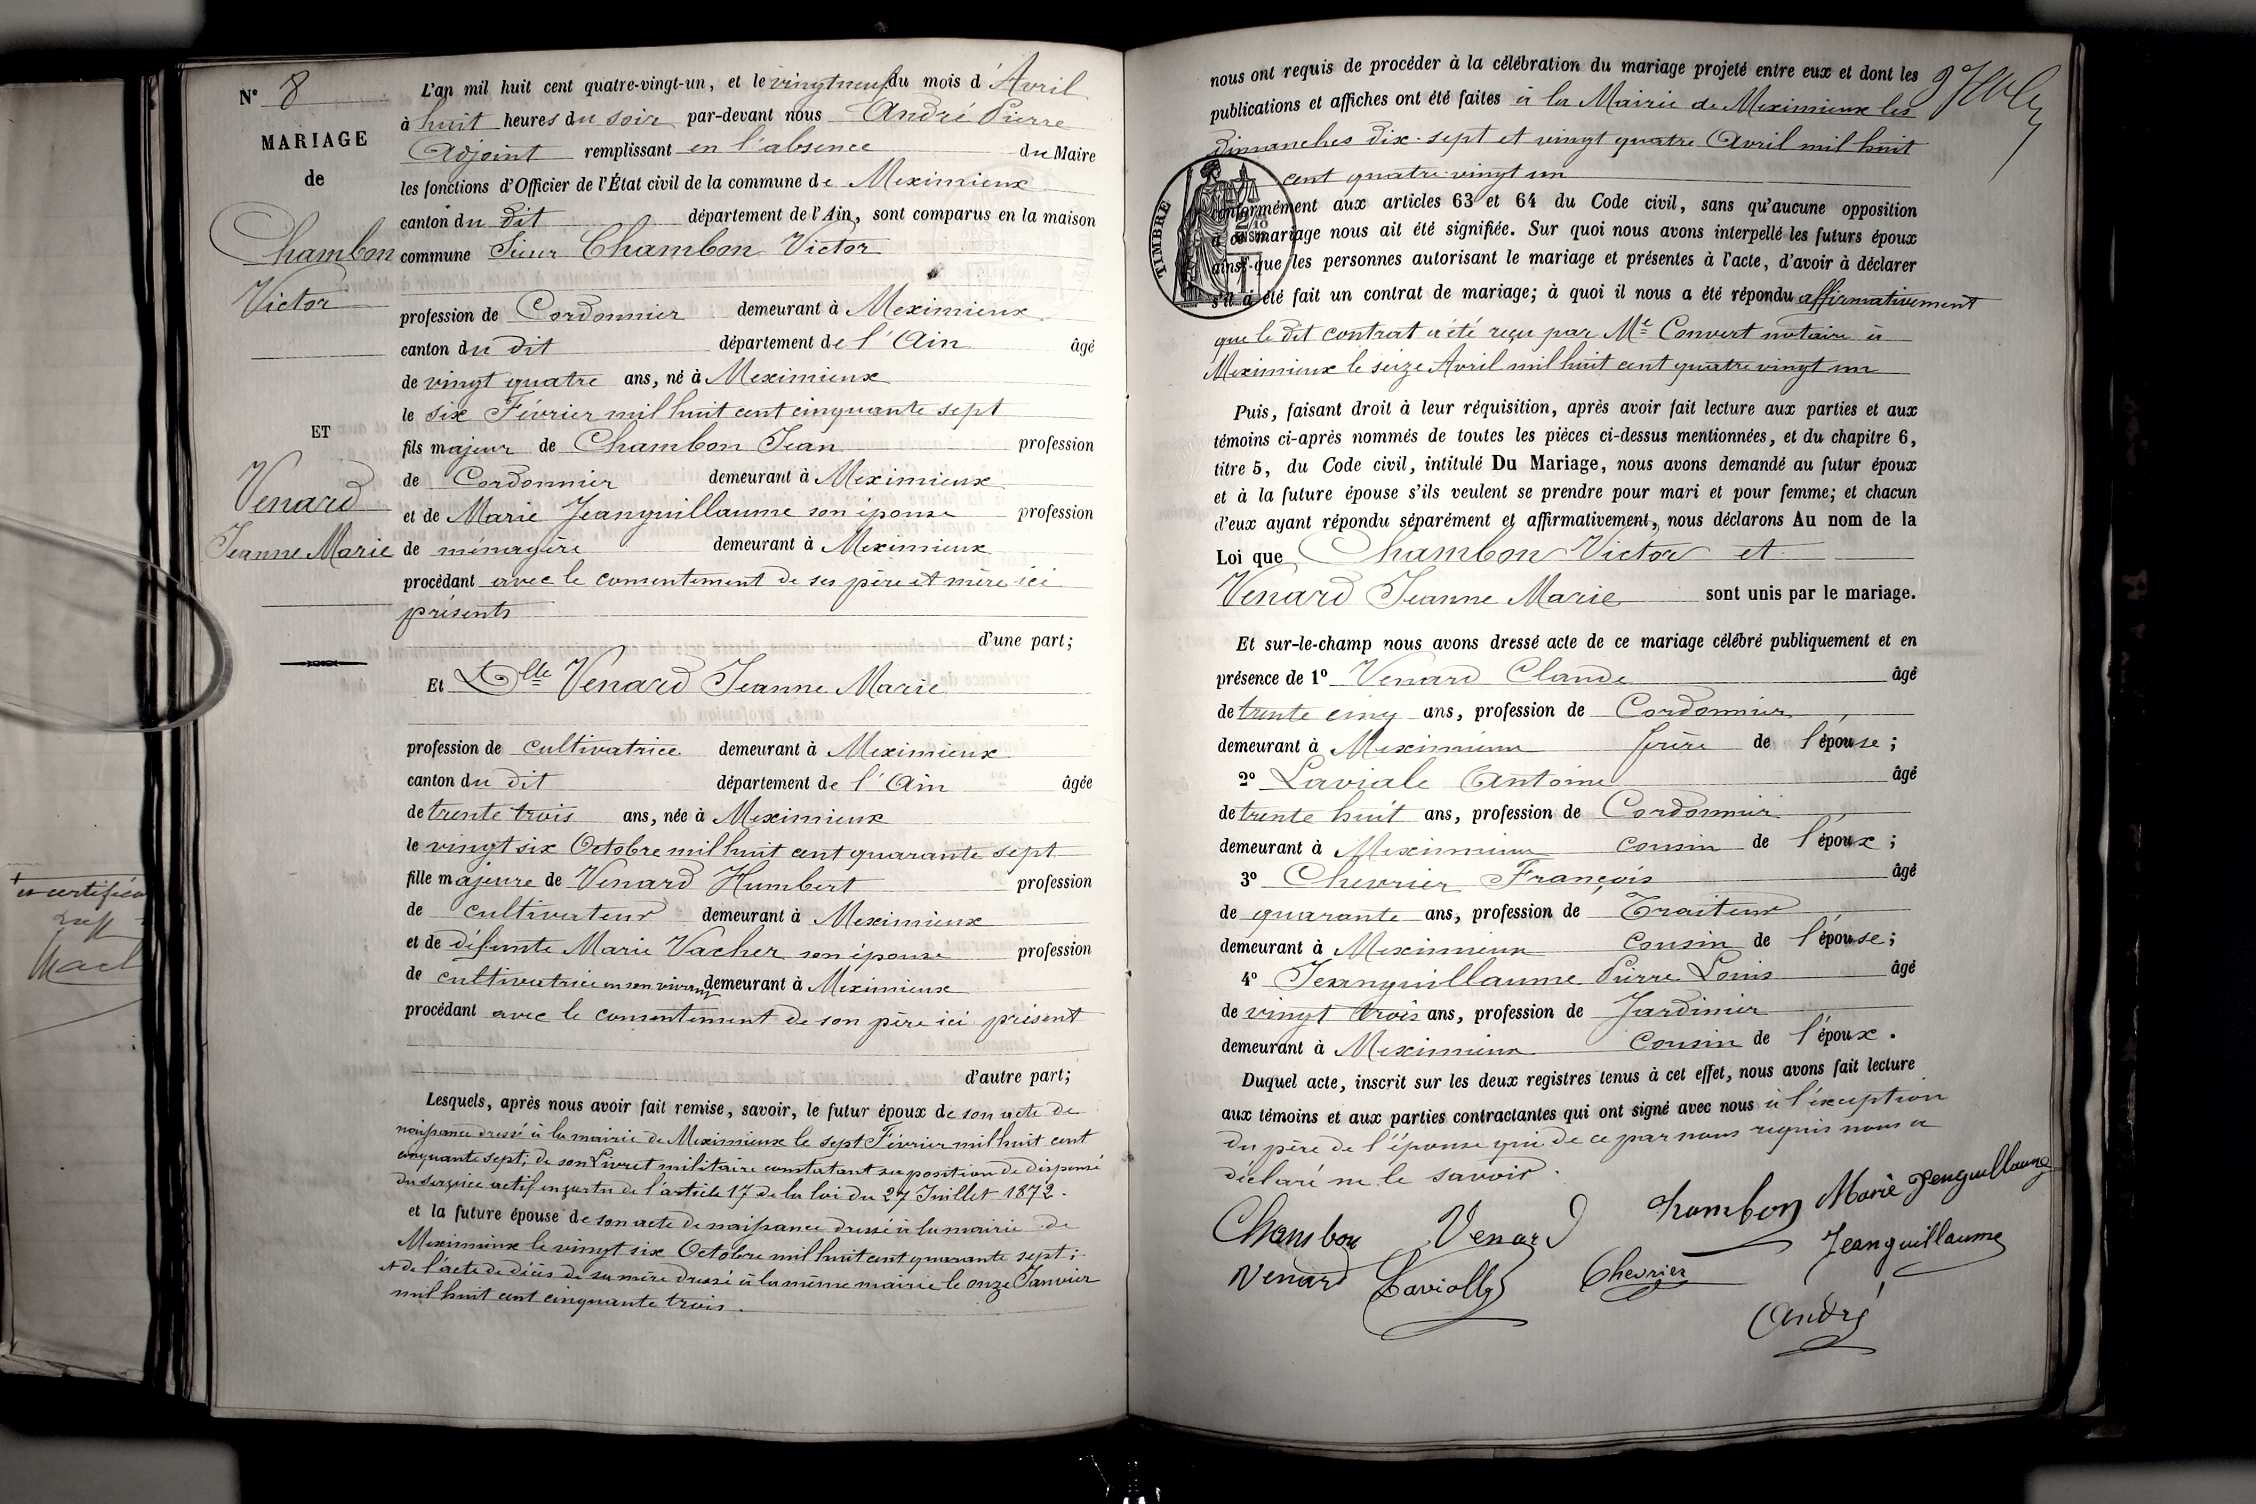 N° 8
MARIAGE
de
Chambon
Victor
ET
Venard
Jeanne Marie
L'an mil huit cent quatre-vingt-un, et le vingt neuf du mois d'Avril
à huit heures du soir par-devant nous André Pierre
Adjoint remplissant en l'absence du Maire
les fonctions d'Officier de l'État civil de la commune de Meximieux
canton du dit département de l'Ain, sont comparus en la maison
commune Sieur Chambon Victor
profession de Cordonnier demeurant à Meximieux
canton du dit département de l'Ain âgé
de vingt quatre ans, né à Meximieux
le six Février mil huit cent cinquante sept
fils majeur de Chambon Jean profession
de Cordonnier demeurant à Meximieux
et de Marie Jeanguillaume son épouse profession
de ménagère demeurant à Meximieux
procédant avec le consentement de ses père et mère ici
présents
d'une part;
Et Dlle Venard Jeanne Marie
profession de cultivatrice demeurant à Meximieux
canton du dit département de l'Ain âgée
de trente trois ans, née à Meximieux
le vingt six Octobre mil huit cent quarante sept
fille majeure de Venard Humbert profession
de cultivateur demeurant à Meximieux
et de défunte Marie Vacher son épouse profession
de cultivatrice en son vivant demeurant à Meximieux
procédant avec le consentement de son père ici présent
d'autre part;
Lesquels, après nous avoir fait remise, savoir, le futur époux de son acte de
naissance dressé à la mairie de Meximieux le sept Février mil huit cent
cinquante sept; de son Livret militaire constatant sa position de dispensé
du service actif en vertu de l'article 17 de la loi du 27 Juillet 1872.
et la future épouse de son acte de naissance dressé à la mairie de
Meximieux le vingt six Octobre mil huit cent quarante sept;
et de l'acte de décès de sa mère dressé à la même mairie le onze Janvier
mil huit cent cinquante trois.
nous ont requis de procéder à la célébration du mariage projeté entre eux et dont les
publications et affiches ont été faites à la Mairie de Meximieux les
Dimanches dix-sept et vingt quatre Avril mil huit
cent quatre-vingt un
TIMBRE
conformément aux articles 63 et 64 du Code civil, sans qu'aucune opposition
à ce mariage nous ait été signifiée. Sur quoi nous avons interpellé les futurs époux
ainsi que les personnes autorisant le mariage et présentes à l'acte, d'avoir à déclarer
s'il a été fait un contrat de mariage; à quoi il nous a été répondu affirmativement
que le dit contrat a été reçu par Me Convert notaire à
Meximieux le seize Avril mil huit cent quatre vingt un
Puis, faisant droit à leur réquisition, après avoir fait lecture aux parties et aux
témoins ci-après nommés de toutes les pièces ci-dessus mentionnées, et du chapitre 6,
titre 5, du Code civil, intitulé Du Mariage, nous avons demandé au futur époux
et à la future épouse s'ils veulent se prendre pour mari et pour femme; et chacun
d'eux ayant répondu séparément et affirmativement, nous déclarons Au nom de la
Loi que Chambon Victor et
Venard Jeanne Marie sont unis par le mariage.
Et sur-le-champ nous avons dressé acte de ce mariage célébré publiquement et en
présence de 1° Venard Claude âgé
de trente cinq ans, profession de Cordonnier
demeurant à Meximieux frère de l'épouse;
2° Laviale Antoine âgé
de trente huit ans, profession de Cordonnier
demeurant à Meximieux cousin de l'époux;
3° Chevrier François âgé
de quarante ans, profession de Traiteur
demeurant à Meximieux cousin de l'épouse;
4° Jeanguillaume Pierre Louis âgé
de vingt trois ans, profession de Jardinier
demeurant à Meximieux cousin de l'époux.
Duquel acte, inscrit sur les deux registres tenus à cet effet, nous avons fait lecture
aux témoins et aux parties contractantes qui ont signé avec nous à l'éxception
du père de l'épouse qui de ce par nous requis nous a
déclaré ne le savoir.
Chambon Venard Chambon Marie Jenguillaume
Venard Laviolle Chevrier Jeanguillaume
André